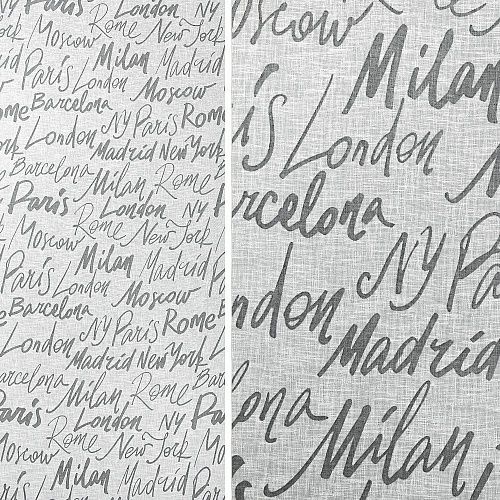 London NY Paris
Moscow New York
Milan Madrid
Paris London Moscow
Rome Barcelona
London NY Paris Rome
Madrid New York
Barcelona Milan Rome
Paris London NY
Rome New York
Moscow Milan Madrid
Paris London Moscow
Barcelona
London NY Paris Rome
Madrid New York
Barcelona Milan Rome
Paris London NY
Rome New York
Moscow Milan Madrid
Moscow
Milan
London
Barcelona
NY
London
Madrid
Milan